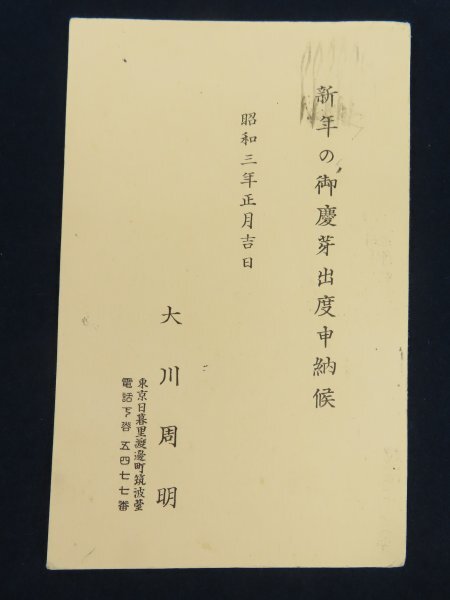 新年の御慶芽出度申納候
昭和三年正月吉日
大川周明
東京日暮里渡邊町筑波臺
電話下谷五四七七番